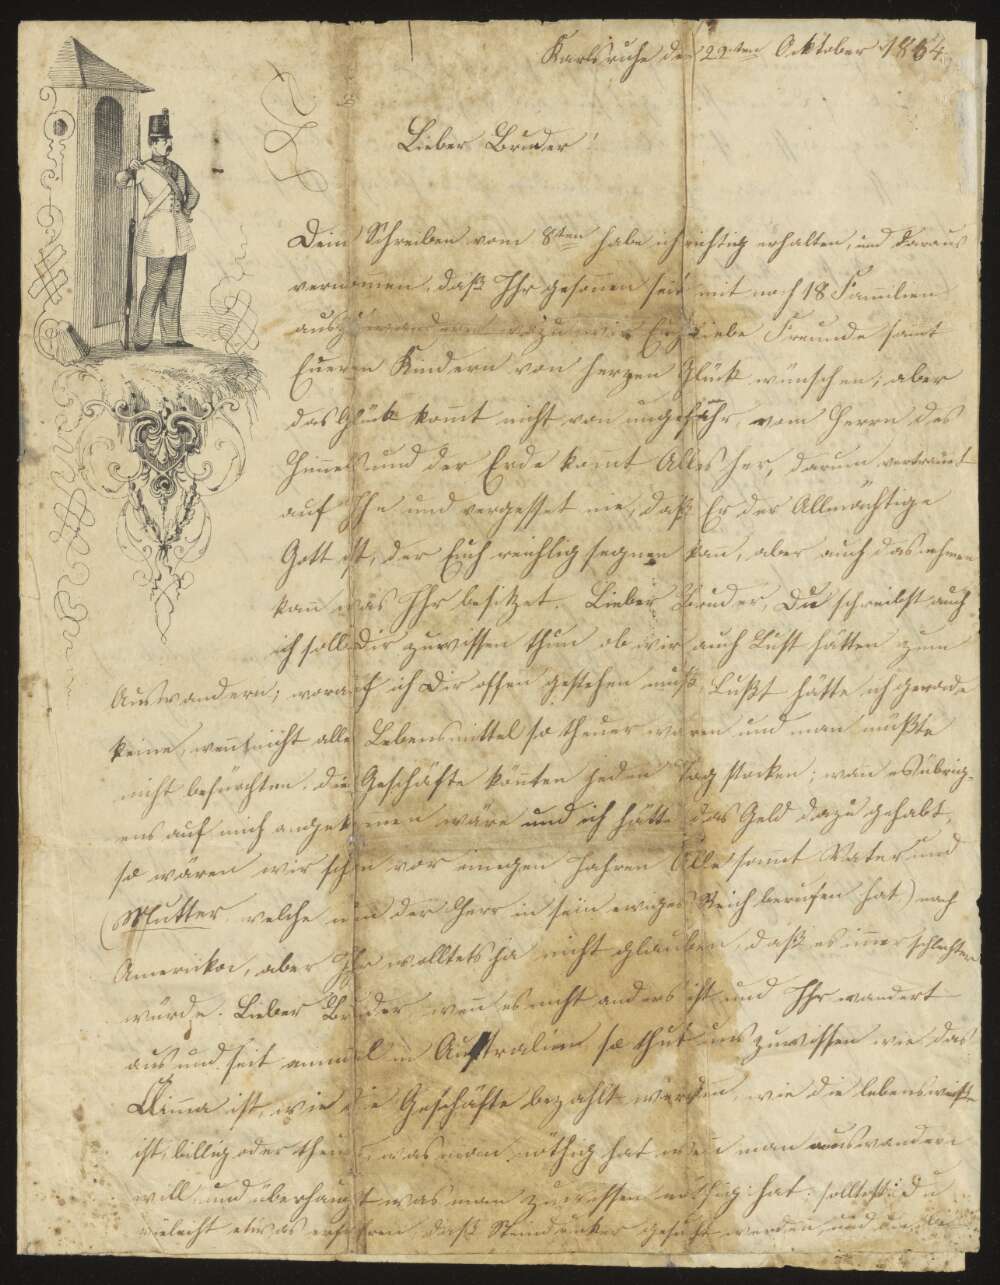 Karlsruhe den 22ten Oktober 1854.
Lieber Bruder!
Dein Schreiben vom 8ten habe ich richtig erhalten, und daraus
vernommen, daß Ihr gesonnen seit mit noch 18 Familien
auszuwandern wozu wir Euch liebe Freunde samt
Eueren Kindern von herzen Glück wünschen; aber
das Glück komt nicht von ungefähr, vom Herrn des
Himmels und der Erde komt Alles her, darum vertrauet
auf Ihn und vergesset nie, daß Er der Allmächtige
Gott ist, der Euch reichlig segnen kan, aber auch das nehmen
kan was Ihr besitzet. Lieber Bruder, Du schreibst auch
ich soll Dir zuwissen thun ob wir auch Lust hätten zum
Auswandern; worauf ich Dir offen gestehen muß, Lußt hätte ich gerade
keine, wenn nicht alle Lebensmittel so theuer wären und man müßte
nicht befürchten die Geschäfte könnten jeden Tag stocken; wann es übrig-
ens auf mich angekomen wäre und ich hätte das Geld dazu gehabt,
so wären wir schon vor einigen Jahren Alle sammt Vater und
(Mutter welche nun der Herr in sein ewiges Reich berufen hat) nach
Amerika, aber Ihr wolltets ja nicht glauben, daß es immer schlechter
würde. Lieber Bruder wen es nicht anders ist und Ihr wandert
aus und seit einmal in Australien so thut uns zuwissen wie das
Clima ist, wie die Geschäfte bezahlt werden, wie die lebensweise
ist, billig oder theuer, was man nöthig hat wen man auswandern
will und überhaupt was man zuwissen nöthig hat: solltest Du
vieleicht etwas erfahren daß Steindrucker gesucht werden, und